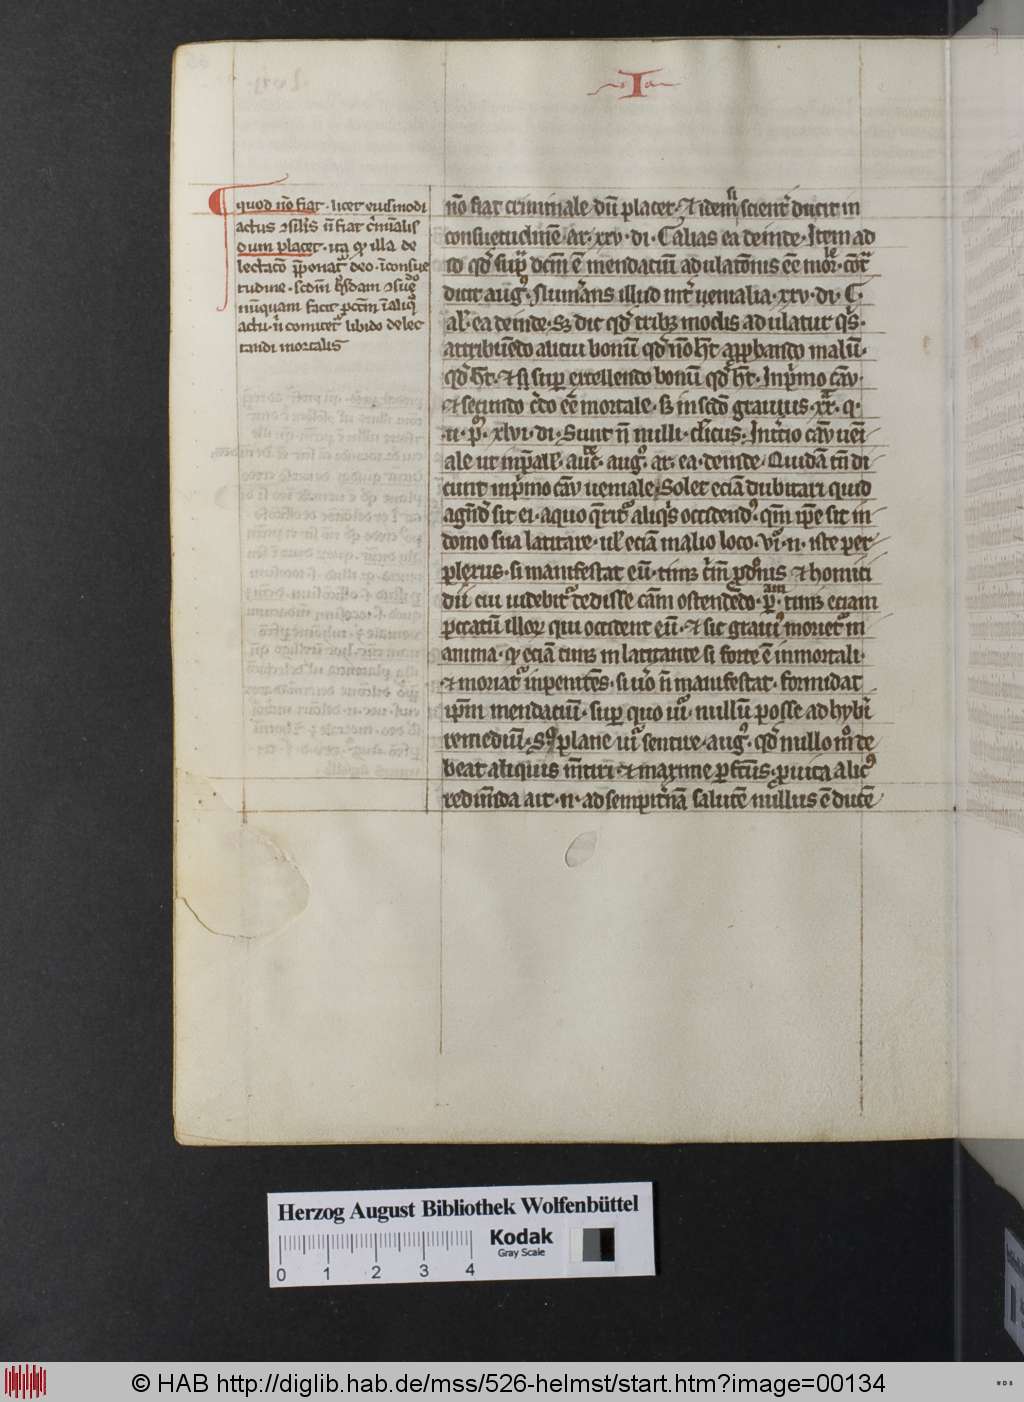 I
quod nō fiat · licet eiusmodi
actus ꝯsil'is n̄ fiat c̄minalis
dum placet · ita qꝫ illa de
lectacō p̄ponat᷑ deo · ī consue
tudine · scdm̄ qͦsdam
nūquam facit pctm̄ ī aliqͦ
actu · n̄ comitet᷑ libido delec
tandi mortalis
nō fiat criminale dū placet · ⁊ idem scient᷑ ducit in
consuetudinē ar · xxv · di · C alias ea demde · Item ad
id qd̓ sup̄ dcm̄ ē mendaciū adulatōnis eē mor̄ ·
dicit augͦ · numerans illud int̓ uenialia · xxv · di · C ·
al' · ea demde · Sꝫ dic qd̓ tribꝫ modis adulatur qͥs ·
attribuēdo alicui bonū qd̓ nō h̄t app̄bando malū ·
qd̓ h̄t · ⁊ si sup̄ extollendo bonū qd̓ h̄t · In p̓mo cāu ·
⁊ secundo c̄do eē mortale · sꝫ in scdō grauius · q̄ ·
· ii · pͦ · xlvi · di · Sunt n̄ nulli · cl̓icus · In t̓cio cāu ueī
ale ut in p̄all' · augͦ · ar · ea · demde · Quidā tn̄ di
cunt in p̓mo cāu ueniale Solet eciā dubitari quid
agn̄d̓ sit ei · a quo q̄rit᷑ aliqͥs occidendꝰ · qm̄ ip̄e sit in
domo sua latitare · ul' eciā in alio loco · Vi᷑ · n · iste per
plexus · si manifestat eū · timꝫ c̓m̄ p̄dōnis ⁊ homici
dii cui uidebit᷑ dedisse cām ostendēdo · p̄am · timꝫ eciam
pccatū illoꝝ qui occident eū · ⁊ sic grauiꝰ moriet᷑ in
anima · qꝫ eciā timꝫ in latitante si forte ē in mortali ·
⁊ moriat᷑ inpenitēs · si u̓o n̄ manifestat · formidat
ip̄m mendaciū · super quo ui᷑ · nullū posse adhyb̓i
remediū · Sꝫ plane ui᷑ sentire · augͦ · qd̓ nullo mͦ de
beat aliquis m̄tiri · ⁊ maxime p̄fc̄us · p̱ uita alicꝰ
redim̄da ait · n · ad sempit̓nā salutē nullus ē ducē
Herzog August Bibliothek Wolfenbüttel
Kodak
Gray Scale
0 1 2 3 4
© HAB http://diglib.hab.de/mss/526-helmst/start.htm?image=00134